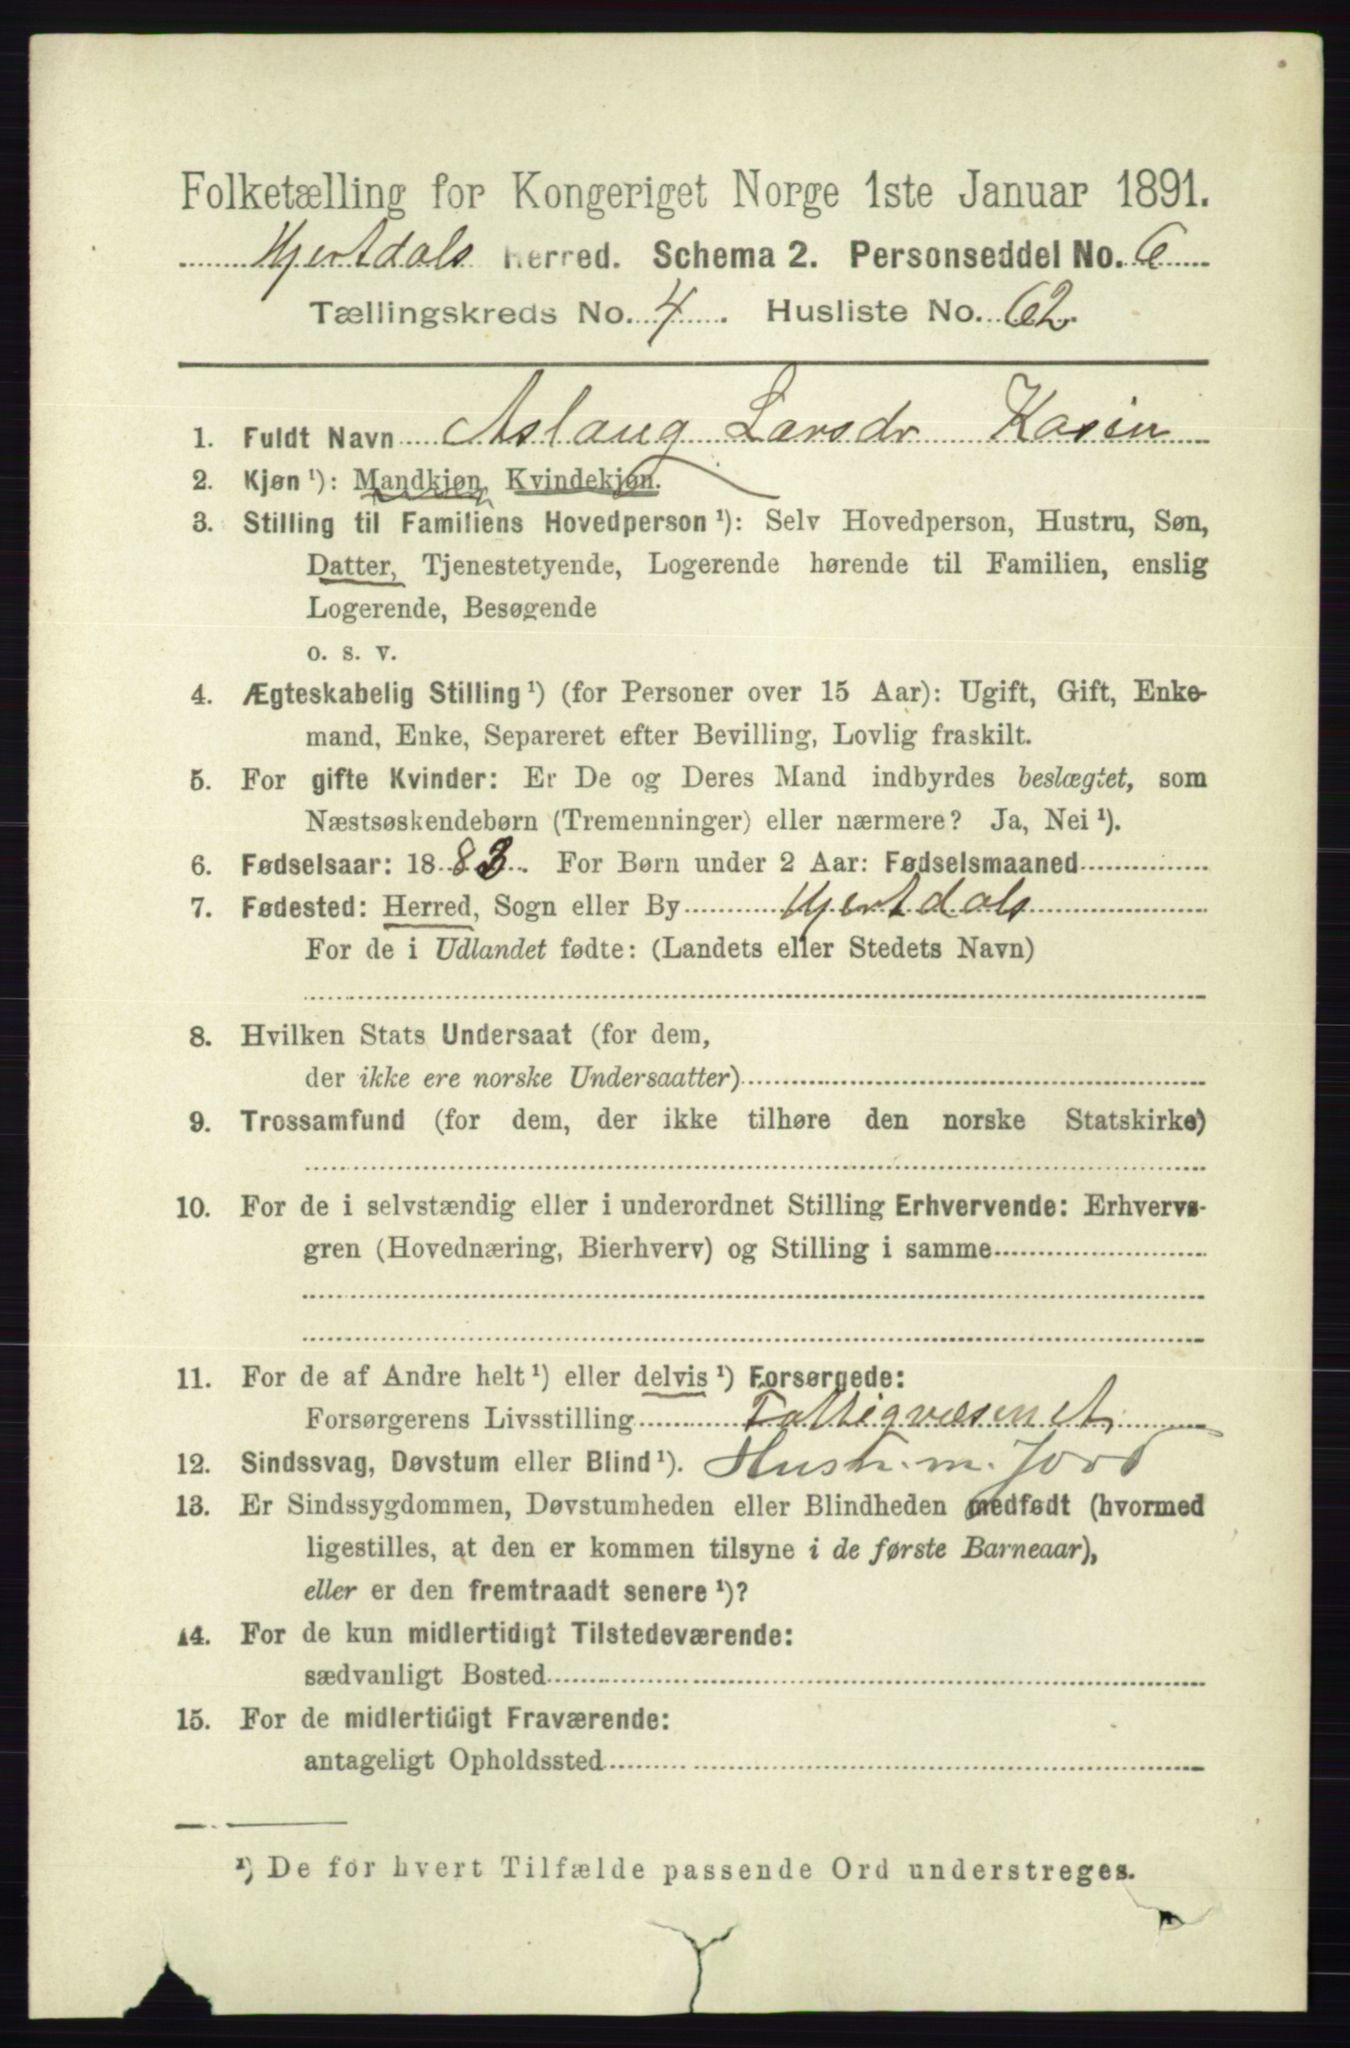 Folketælling for Kongeriget Norge 1ste Januar 1891.
Hjertdals Herred. Schema 2. Personseddel No. 6
Tællingskreds No. 4. Husliste No. 62.
1. Fuldt Navn Aslaug Larsdr Kasin
2. Kjøn ¹): Mandkjøn, Kvindekjøn.
3. Stilling til Familiens Hovedperson ¹): Selv Hovedperson, Hustru, Søn,
Datter, Tjenestetyende, Logerende hørende til Familien, enslig
Logerende, Besøgende
o. s. v.
4. Ægteskabelig Stilling ¹) (for Personer over 15 Aar): Ugift, Gift, Enke-
mand, Enke, Separeret efter Bevilling, Lovlig fraskilt.
5. For gifte Kvinder: Er De og Deres Mand indbyrdes beslægtet, som
Næstsøskendebørn (Tremenninger) eller nærmere? Ja, Nei ¹).
6. Fødselsaar: 1883. For Børn under 2 Aar: Fødselsmaaned
7. Fødested: Herred, Sogn eller By Hjertdals
For de i Udlandet fødte: (Landets eller Stedets Navn)
8. Hvilken Stats Undersaat (for dem,
der ikke ere norske Undersaatter)
9. Trossamfund (for dem, der ikke tilhøre den norske Statskirke)
10. For de i selvstændig eller i underordnet Stilling Erhvervende: Erhvervs-
gren (Hovednæring, Bierhverv) og Stilling i samme
11. For de af Andre helt ¹) eller delvis ¹) Forsørgede:
Forsørgerens Livsstilling Fattigvæsenet,
12. Sindssvag, Døvstum eller Blind ¹). Husm. m. Jord
13. Er Sindssygdommen, Døvstumheden eller Blindheden medfødt (hvormed
ligestilles, at den er kommen tilsyne i de første Barneaar),
eller er den fremtraadt senere ¹)?
14. For de kun midlertidigt Tilstedeværende:
sædvanligt Bosted
15. For de midlertidigt Fraværende:
antageligt Opholdssted
¹) De for hvert Tilfælde passende Ord understreges.